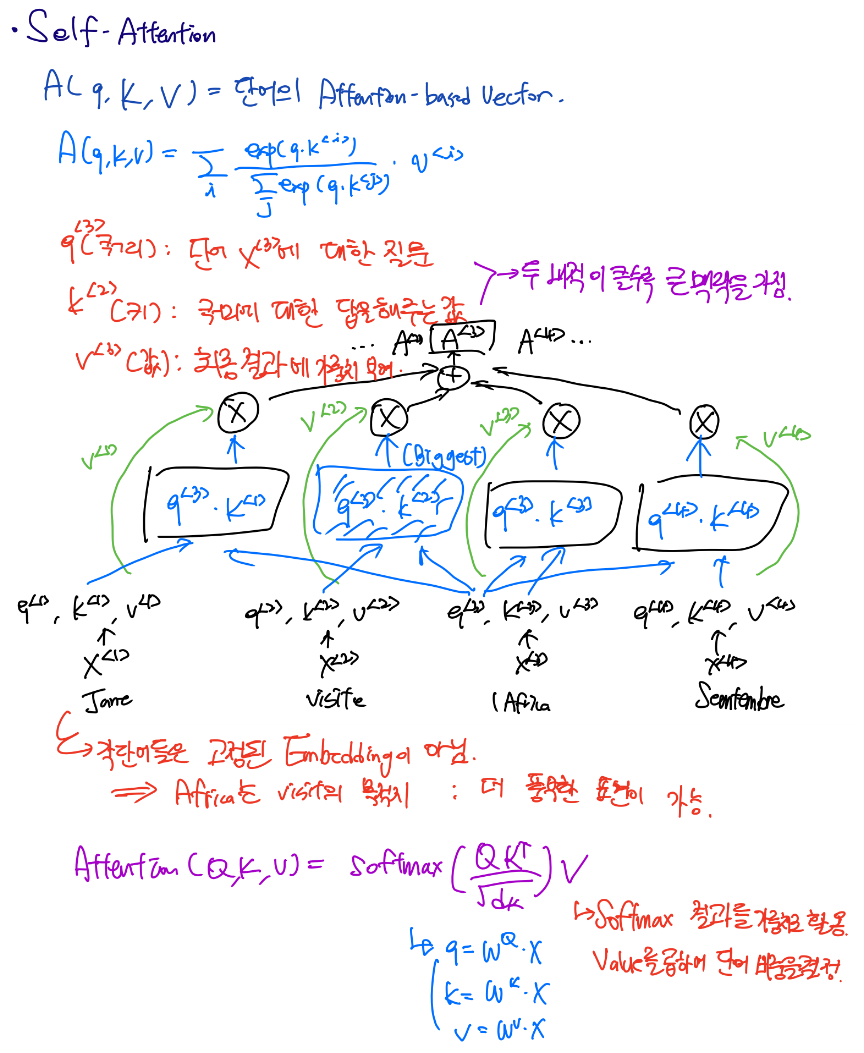 · Self-Attention
A(q, K, V) = 단어의 Attention-based Vector.
A(q,k,v) = Σ_i exp(q·k^<i>) / Σ_j exp(q·k^<j>) · v^<i>
q^<3>(쿼리): 단어 x^<3>에 대한 질문
→ 두 내적이 클수록 큰 맥락을 가짐.
k^<2>(키): 쿼리에 대한 답을 해주는 값
… A^<3> A^<4> …
v^<3>(값): 최종결과에 가중치 부여.
+
X X X X
v^<1> v^<2> v^<3> v^<4>
(Biggest)
q^<3>·k^<1> q^<3>·k^<2> q^<3>·k^<3> q^<4>·k^<4>
q^<1>, k^<1>, v^<1> q^<2>, k^<2>, v^<2> q^<3>, k^<3>, v^<3> q^<4>, k^<4>, v^<4>
x^<1> x^<2> x^<3> x^<4>
Jane visite l'Africa
→ 각단어들은 고정된 Embedding이 아님.
⇒ Africa는 visit의 목적지 : 더 풍부한 표현이 가능.
Attention(Q,K,V) = softmax(QK^T / √dk) V
↳ Softmax 결과를 가중치로 활용.
Value를 곱하여 단어 비중을 결정.
↳ q = W^Q·X
k = W^K·X
v = W^V·X